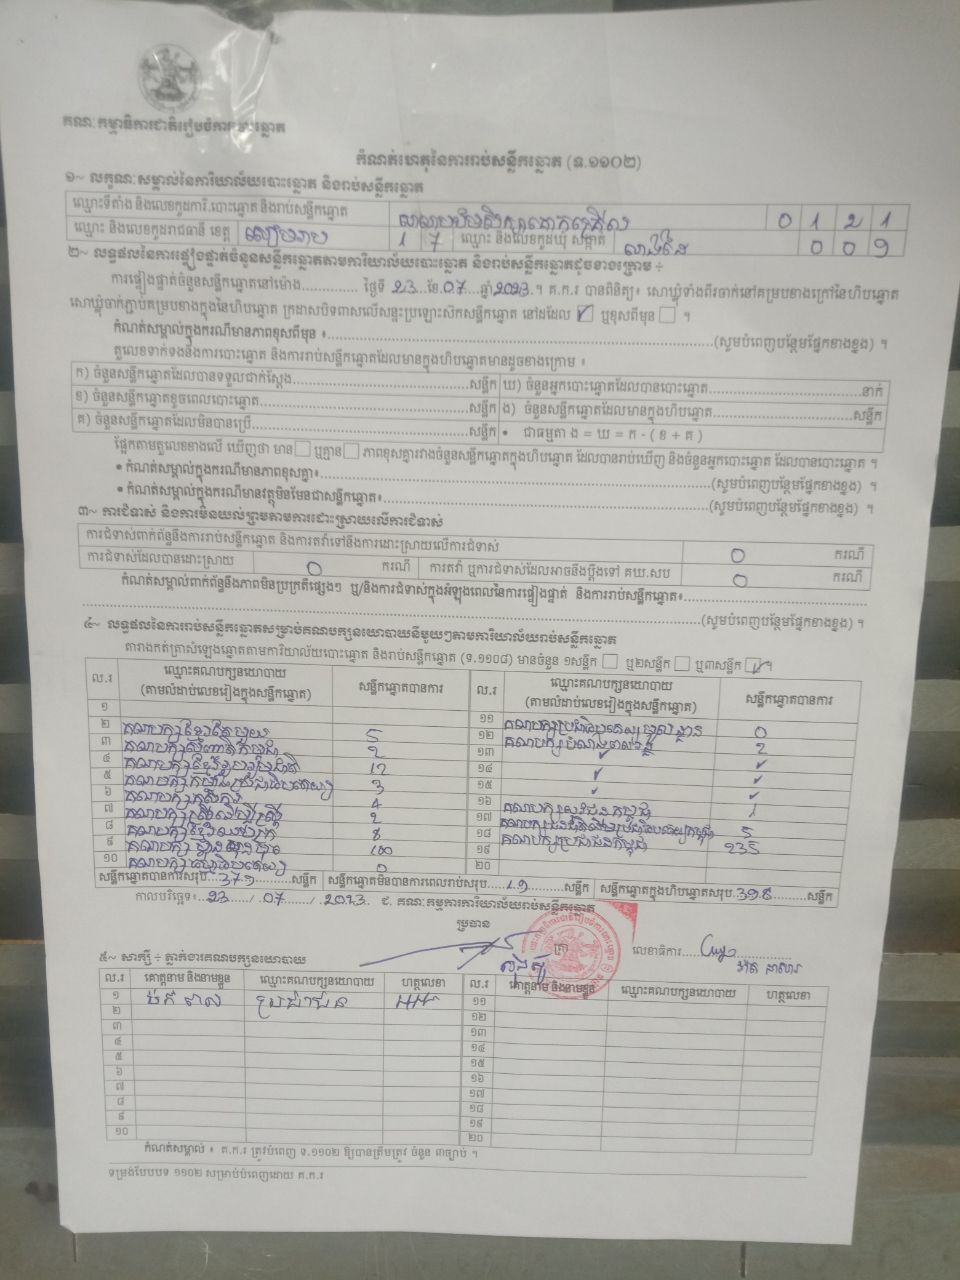 គណៈកម្មាធិការជាតិរៀបចំការបោះឆ្នោត
កំណត់ហេតុនៃការរាប់សន្លឹកឆ្នោត (ទ.១១០២)
១~ លក្ខណៈសម្គាល់នៃការិយាល័យបោះឆ្នោត និងរាប់សន្លឹកឆ្នោត
ឈ្មោះទីតាំង និងលេខកូដការិ.បោះឆ្នោត និងរាប់សន្លឹកឆ្នោត 0 1 2 1
ឈ្មោះ និងលេខកូដរាជធានី ខេត្ត សៀមរាប 1 7 ឈ្មោះ និងលេខកូដឃុំ សង្កាត់ 0 0 9
២~ លទ្ធផលនៃការផ្ទៀងផ្ទាត់ចំនួនសន្លឹកឆ្នោតតាមការិយាល័យបោះឆ្នោត និងរាប់សន្លឹកឆ្នោតដូចខាងក្រោម ÷
ការផ្ទៀងផ្ទាត់ចំនួនសន្លឹកឆ្នោតនៅម៉ោង.............. ថ្ងៃទី 23 ...ខែ.07... ឆ្នាំ 2023.។ គ.ក.រ បានពិនិត្យ៖ សោឃ្លុំទាំងពីរចាក់នៅគម្របខាងក្រៅនៃហិបឆ្នោត
សោឃ្លុំចាក់ភ្ជាប់គម្របខាងក្នុងនៃហិបឆ្នោត ក្រដាសបិទពាសលើសន្ទះប្រឡោះសិកសន្លឹកឆ្នោត នៅដដែល ☑ ឬខុសពីមុន ☐ ។
កំណត់សម្គាល់ក្នុងករណីមានភាពខុសពីមុន ៖......(សូមបំពេញបន្ថែមផ្នែកខាងខ្នង) ។
តួលេខទាក់ទងនឹងការបោះឆ្នោត និងការរាប់សន្លឹកឆ្នោតដែលមានក្នុងហិបឆ្នោតមានដូចខាងក្រោម ៖
ក) ចំនួនសន្លឹកឆ្នោតដែលបានទទួលជាក់ស្តែង......សន្លឹក ឃ) ចំនួនអ្នកបោះឆ្នោតដែលបានបោះឆ្នោត......នាក់
ខ) ចំនួនសន្លឹកឆ្នោតខូចពេលបោះឆ្នោត......សន្លឹក ង) ចំនួនសន្លឹកឆ្នោតដែលមានក្នុងហិបឆ្នោត......សន្លឹក
គ) ចំនួនសន្លឹកឆ្នោតដែលមិនបានប្រើ......សន្លឹក • ជាធម្មតា ង = ឃ = ក - ( ខ + គ )
ផ្អែកតាមតួលេខខាងលើ ឃើញថា មាន ☐ ឬគ្មាន ☐ ភាពខុសគ្នារវាងចំនួនសន្លឹកឆ្នោតក្នុងហិបឆ្នោត ដែលបានរាប់ឃើញ និងចំនួនអ្នកបោះឆ្នោត ដែលបានបោះឆ្នោត ។
• កំណត់សម្គាល់ក្នុងករណីមានភាពខុសគ្នា៖......(សូមបំពេញបន្ថែមផ្នែកខាងខ្នង) ។
• កំណត់សម្គាល់ក្នុងករណីមានវត្ថុមិនមែនជាសន្លឹកឆ្នោត៖......(សូមបំពេញបន្ថែមផ្នែកខាងខ្នង) ។
៣~ ការជំទាស់ និងការមិនយល់ព្រមតាមការដោះស្រាយលើការជំទាស់
ការជំទាស់ពាក់ព័ន្ធនឹងការរាប់សន្លឹកឆ្នោត និងការតវ៉ាទៅនឹងការដោះស្រាយលើការជំទាស់ 0 ករណី
ការជំទាស់ដែលបានដោះស្រាយ 0 ករណី ការតវ៉ា ឬការជំទាស់ដែលអាចនឹងប្តឹងទៅ គឃ.សប 0 ករណី
កំណត់សម្គាល់ពាក់ព័ន្ធនឹងភាពមិនប្រក្រតីផ្សេងៗ ឬ/និងការជំទាស់ក្នុងអំឡុងពេលនៃការផ្ទៀងផ្ទាត់ និងការរាប់សន្លឹកឆ្នោត៖......
......(សូមបំពេញបន្ថែមផ្នែកខាងខ្នង) ។
៤~ លទ្ធផលនៃការរាប់សន្លឹកឆ្នោតសម្រាប់គណបក្សនយោបាយនីមួយៗតាមការិយាល័យរាប់សន្លឹកឆ្នោត
តារាងកត់ត្រាសំឡេងឆ្នោតតាមការិយាល័យបោះឆ្នោត និងរាប់សន្លឹកឆ្នោត (ទ.១១០៨) មានចំនួន ១សន្លឹក ☐ ឬ២សន្លឹក ☐ ឬ៣សន្លឹក ☑។
ល.រ ឈ្មោះគណបក្សនយោបាយ (តាមលំដាប់លេខរៀងក្នុងសន្លឹកឆ្នោត) សន្លឹកឆ្នោតបានការ ល.រ ឈ្មោះគណបក្សនយោបាយ (តាមលំដាប់លេខរៀងក្នុងសន្លឹកឆ្នោត) សន្លឹកឆ្នោតបានការ
១ 5 ១១ 0
២ 2 ១២ 2
៣ 12 ១៣
៤ 3 ១៤
៥ 4 ១៥
៦ 2 ១៦
៧ 8 ១៧ 5
៨ 100 ១៨ គណបក្សប្រជាជនកម្ពុជា 235
៩ ១៩
១០ ២០
សន្លឹកឆ្នោតបានការសរុប..379...សន្លឹក សន្លឹកឆ្នោតមិនបានការពេលរាប់សរុប...19...សន្លឹក សន្លឹកឆ្នោតក្នុងហិបឆ្នោតសរុប.398...សន្លឹក
កាលបរិច្ឆេទ៖..23../..07../..2023 ជ. គណៈកម្មការការិយាល័យរាប់សន្លឹកឆ្នោត
ប្រធាន
ត្រា លេខាធិការ
៥~ សាក្សី ÷ ភ្នាក់ងារគណបក្សនយោបាយ
ល.រ គោត្តនាម និងនាមខ្លួន ឈ្មោះគណបក្សនយោបាយ ហត្ថលេខា ល.រ គោត្តនាម និងនាមខ្លួន ឈ្មោះគណបក្សនយោបាយ ហត្ថលេខា
១ ប្រជាជន ១១
២ ១២
៣ ១៣
៤ ១៤
៥ ១៥
៦ ១៦
៧ ១៧
៨ ១៨
៩ ១៩
១០ ២០
កំណត់សម្គាល់ ៖ គ.ក.រ ត្រូវបំពេញ ទ.១១០២ ឱ្យបានត្រឹមត្រូវ ចំនួន ៣ច្បាប់ ។
ទម្រង់បែបបទ ១១០២ សម្រាប់បំពេញដោយ គ.ក.រ